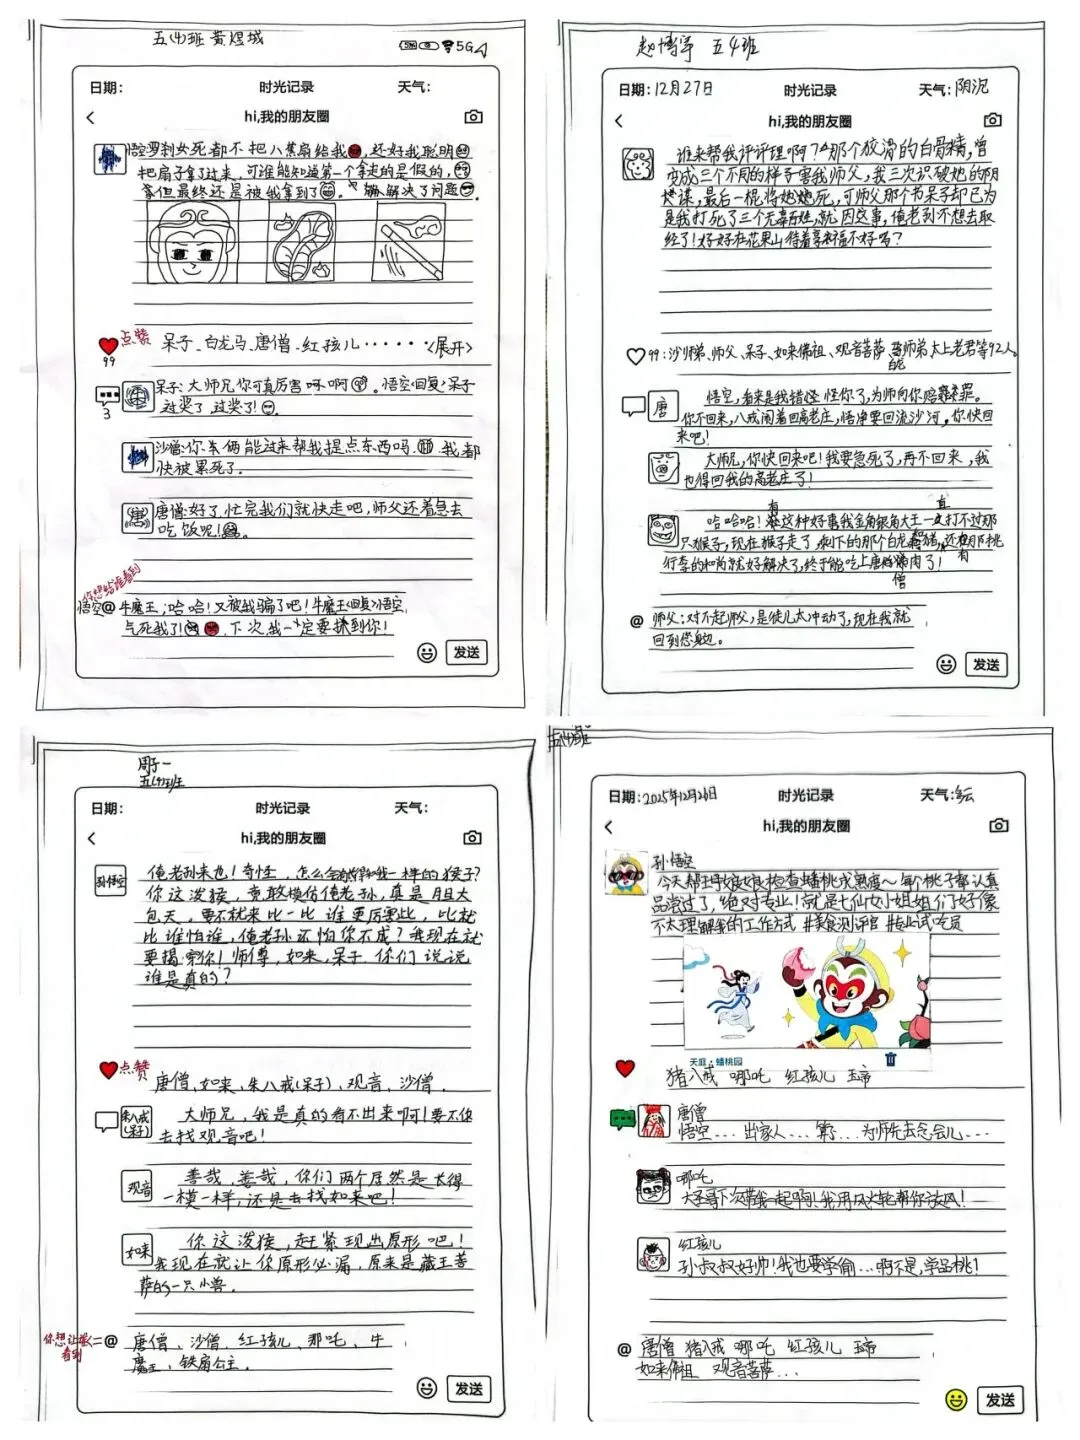 五(4)班 黄煜城
5G
日期:
时光记录
天气:
hi,我的朋友圈
悟空罗刹女死都不把八蕉扇给我,还好我聪明
把扇子拿了过来,可谁能知道第一个拿走的是假的,
拿但最终还是被我拿到了。解决了问题
点赞
99
呆子、白龙马、唐僧、红孩儿······<展开>
3
呆子:大师兄你可真厉害啊。悟空(回复)呆子
过奖了过奖了!
沙僧:你来俩能过来帮我提点东西吗. 我都
快被累死了。
唐
唐僧:好了,忙完我们就快走吧,师父还着急去
吃饭呢!
你想给谁看到
悟空@牛魔王:哈哈!又被我骗了吧!牛魔王(回复)悟空
气死我了! 下次,我一定要抓到你!
发送
赵博宇 五4班
日期:12月27日
时光记录
天气:阴沉
hi,我的朋友圈
谁来帮我评评理啊?那个狡滑的白骨精,曾
变成三个不同的样子害我师父,我三次识破她的阴
谋,最后一棍将她死,可师父那个书呆子却已为
是我打死了三个无辜百姓,就因这事,俺老孙不想去取
经了!好好在花果山待着享福不好吗?
99:沙师弟、师父、呆子、如来佛祖、观音菩萨、师弟太上老君等92人。
唐
悟空,看来是我错怪怪你了,为师向你赔罪。
你不回来,八戒闹着回高老庄,悟净要回流沙河,你快回
来吧!
大师兄,你快回来吧!我要急死了,再不回来,我
也得回我的高老庄了!
有
直
哈哈哈!这种好事我金角银角大王一打不过那
只猴子,现在猴子走了,剩下的那个白龙猪,还那挑
有
行李的和尚就好解决了,终于能吃上唐肉了!
僧
@师父:对不起师父,是徒儿太冲动了,现在我就
回到您身边。
发送
周子一
五(4)班
日期:
时光记录
天气:
hi,我的朋友圈
孙悟空
俺老孙来也!奇怪,怎么会有和我一样的猴子?
你这泼猴,竟敢模仿俺老孙,真是胆大
包天,要不就来比一比谁更厉害些,比就
比谁怕谁,俺老孙还怕你不成?我现在就
要揭穿你!师傅,如来,呆子你们说说
谁是真的?
点赞
唐僧,如来,朱八戒(呆子),观音,沙僧.
朱八戒
(呆子)
大师兄,我是真的看不出来啊!要不你
去找观音吧!
观音
善哉,善哉,你们两个居然是长得
一模一样,还是去找如来吧!
如来
你这泼猴,赶紧现出原形吧!
我现在就让你原形必漏,原来是藏王菩
萨的一只小兽.
你想让谁看到
@唐僧、沙僧、红孩儿、那吒、牛
魔王、铁扇公主.
发送
五(4)班
日期:2025年12月26日
时光记录
天气:多云
hi,我的朋友圈
孙悟空
今天帮王母娘娘检查蟠桃成熟度~每个桃子都认真
品尝过了,绝对专业!就是七仙女小姐姐们好像
不太理解我的工作方式 #美食测评官 #专业试吃员
天庭·蟠桃园
猪八戒 哪吒 红孩儿 玉帝
唐僧
悟空...出家人...算了...为师先去念会儿...
哪吒
大圣哥下次带我一起啊!我用风火轮帮你放风!
红孩儿
孙叔叔好帅!我也要学偷...啊不是,学品桃!
@唐僧 猪八戒 哪吒 红孩儿 玉帝
如来佛祖 观音菩萨...
发送